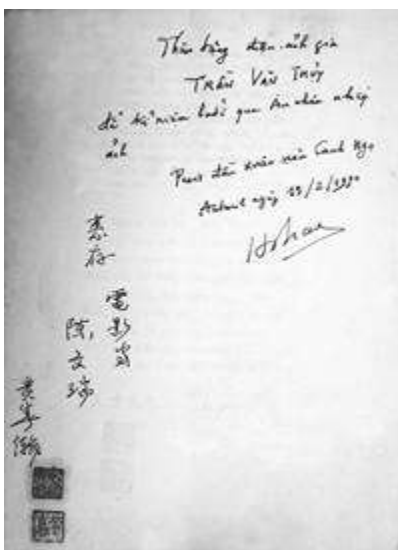 Thân tặng điện ảnh gia
Trần Văn Thủy
để kỷ niệm buổi qua An nhân nhiếp
ảnh
Paris đầu xuân năm Canh Ngọ
ngày 23/2/1990
惠存
電影家
陳文瑞
黃